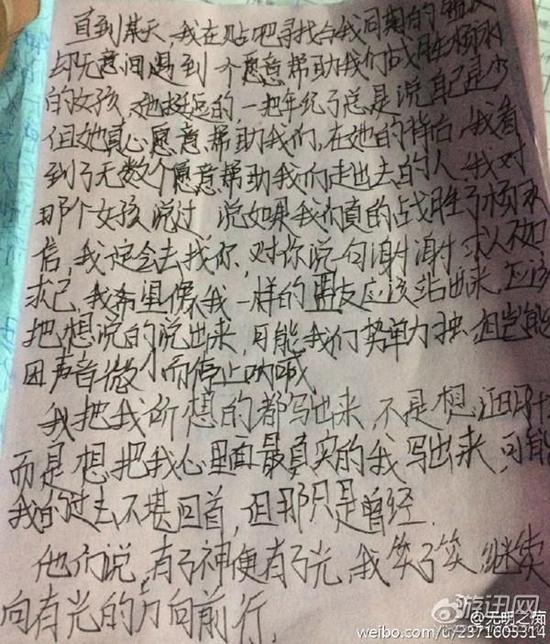 直到某天,我在贴吧寻找与我同期的
却无意间遇到 个愿意帮助我们战胜杨永
的女孩,她挺逗的,一把年纪了总是说自己是少
但她真心愿意帮助我们,在她的背后,我看
到了无数个愿意帮助我们走出去的人,我对
那个女孩说过 说如果我们真的战胜了杨永
信,我定会去找你,对你说句谢谢,求人不如
求己,我希望像我一样的盟友应该站出来,应该
把想说的说出来,可能我们势单力孤,但岂能
因声音微小而停止呐喊
我把我所想的都写出来,不是想证明什
而是想把我心里面最真实的我写出来,可能
我的过去不堪回首,但那只是曾经.
他们说,有了神便有了光,我笑了笑,继续
向有光的方向前行.
游讯网
@无明之痴
weibo.com/u/2371605314